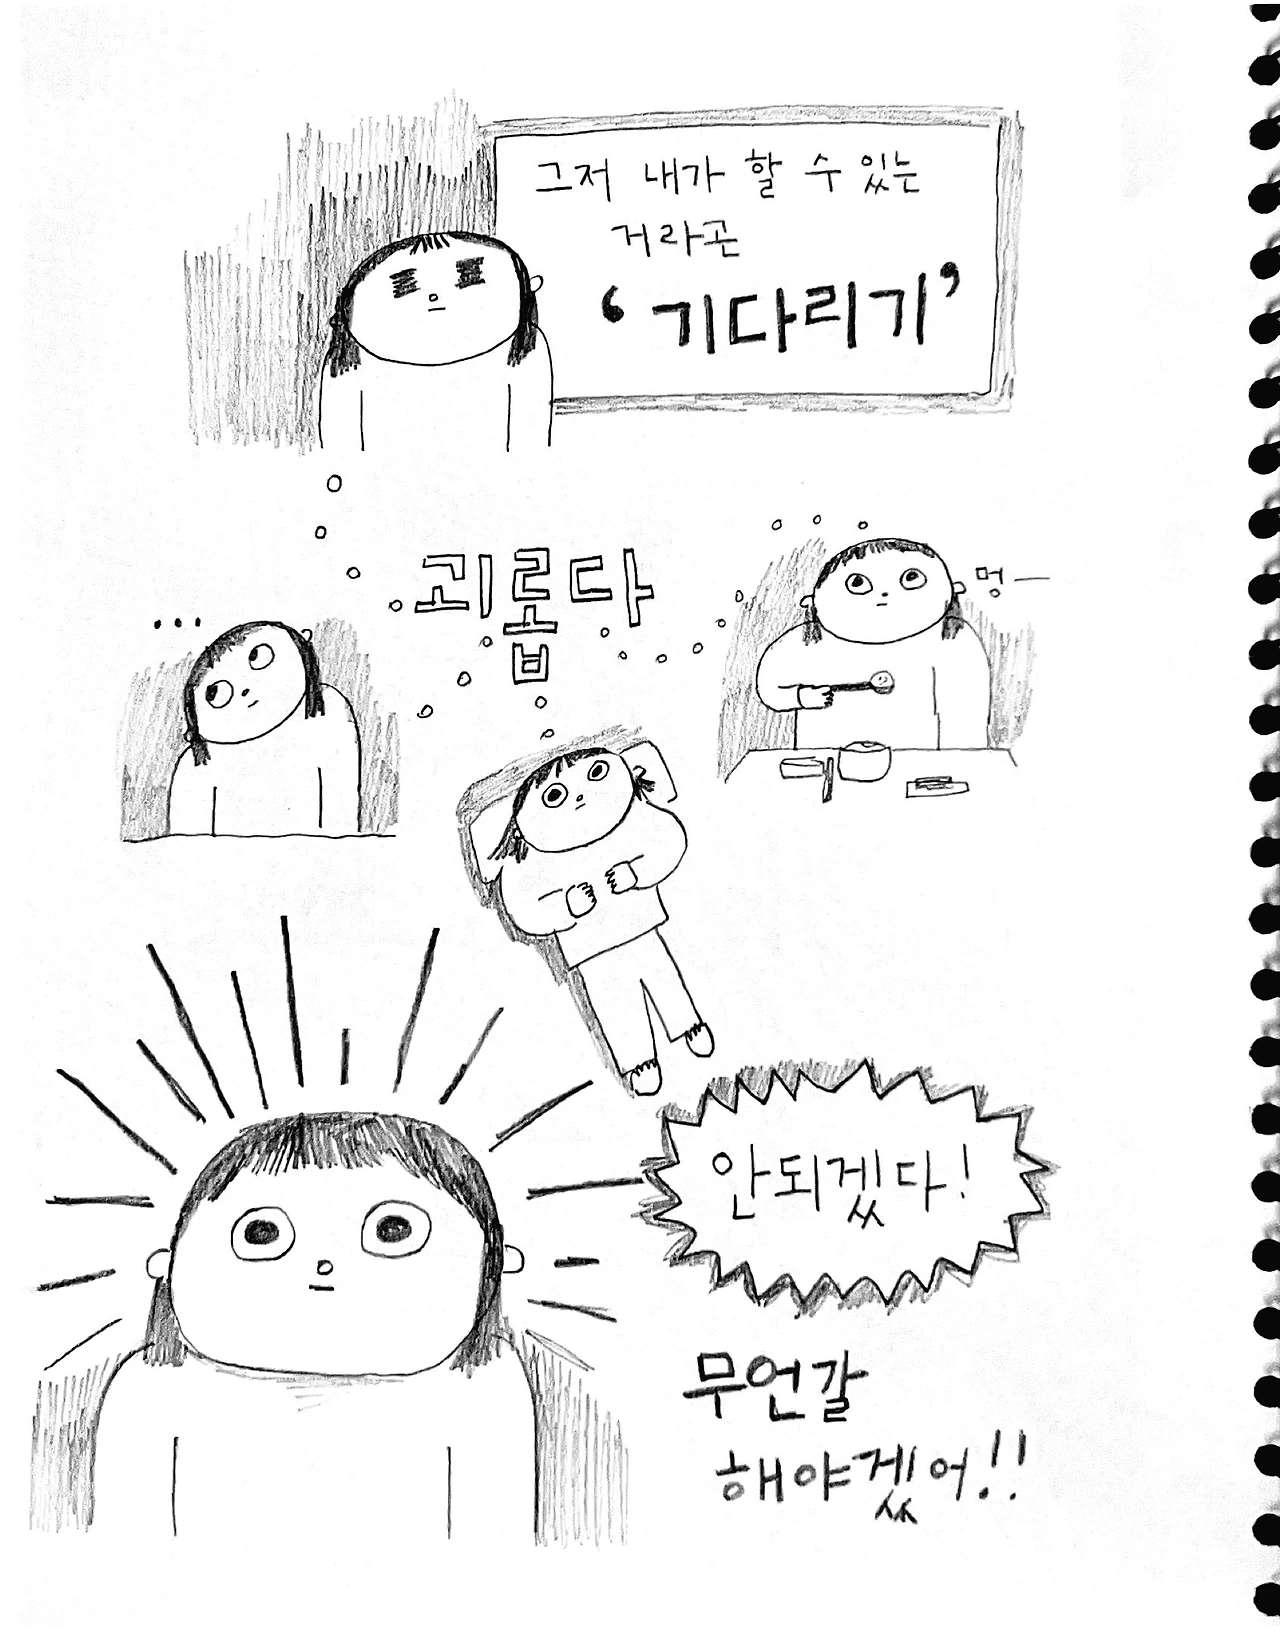 그저 내가 할 수 있는
거라곤
‘기다리기’
괴롭다
멍—
...
안되겠다!
무언갈
해야겠어!!